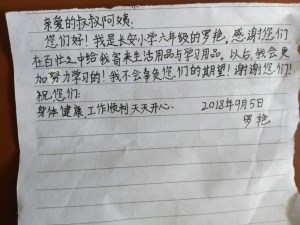 亲爱的叔叔阿姨:
您们好!我是长安小学六年级的罗艳。感谢您们
在百忙之中给我寄来生活用品与学习用品。以后,我会更
加努力学习的!我不会辜负您们的期望!谢谢您们!
祝您们:
身体健康,工作顺利天天开心. 2018年9月5日
罗艳